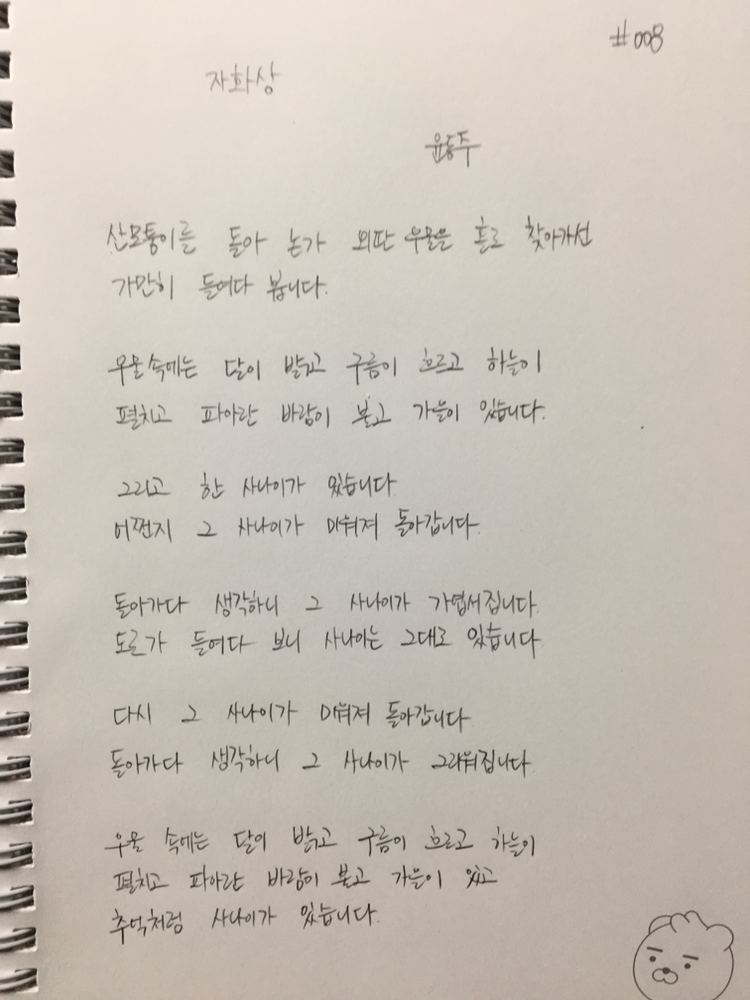 #008
자화상
윤동주
산모퉁이를 돌아 논가 외딴 우물은 홀로 찾아가선
가만히 들여다 봅니다.
우물속에는 달이 밝고 구름이 흐르고 하늘이
펼치고 파아란 바람이 불고 가을이 있습니다.
그리고 한 사나이가 있습니다
어쩐지 그 사나이가 미워져 돌아갑니다.
돌아가다 생각하니 그 사나이가 가엽서집니다.
도로가 들여다 보니 사나이는 그대로 있습니다
다시 그 사나이가 미워져 돌아갑니다
돌아가다 생각하니 그 사나이가 그리워집니다
우물 속에는 달이 밝고 구름이 흐르고 하늘이
펼치고 파아란 바람이 불고 가을이 있고
추억처럼 사나이가 있습니다.